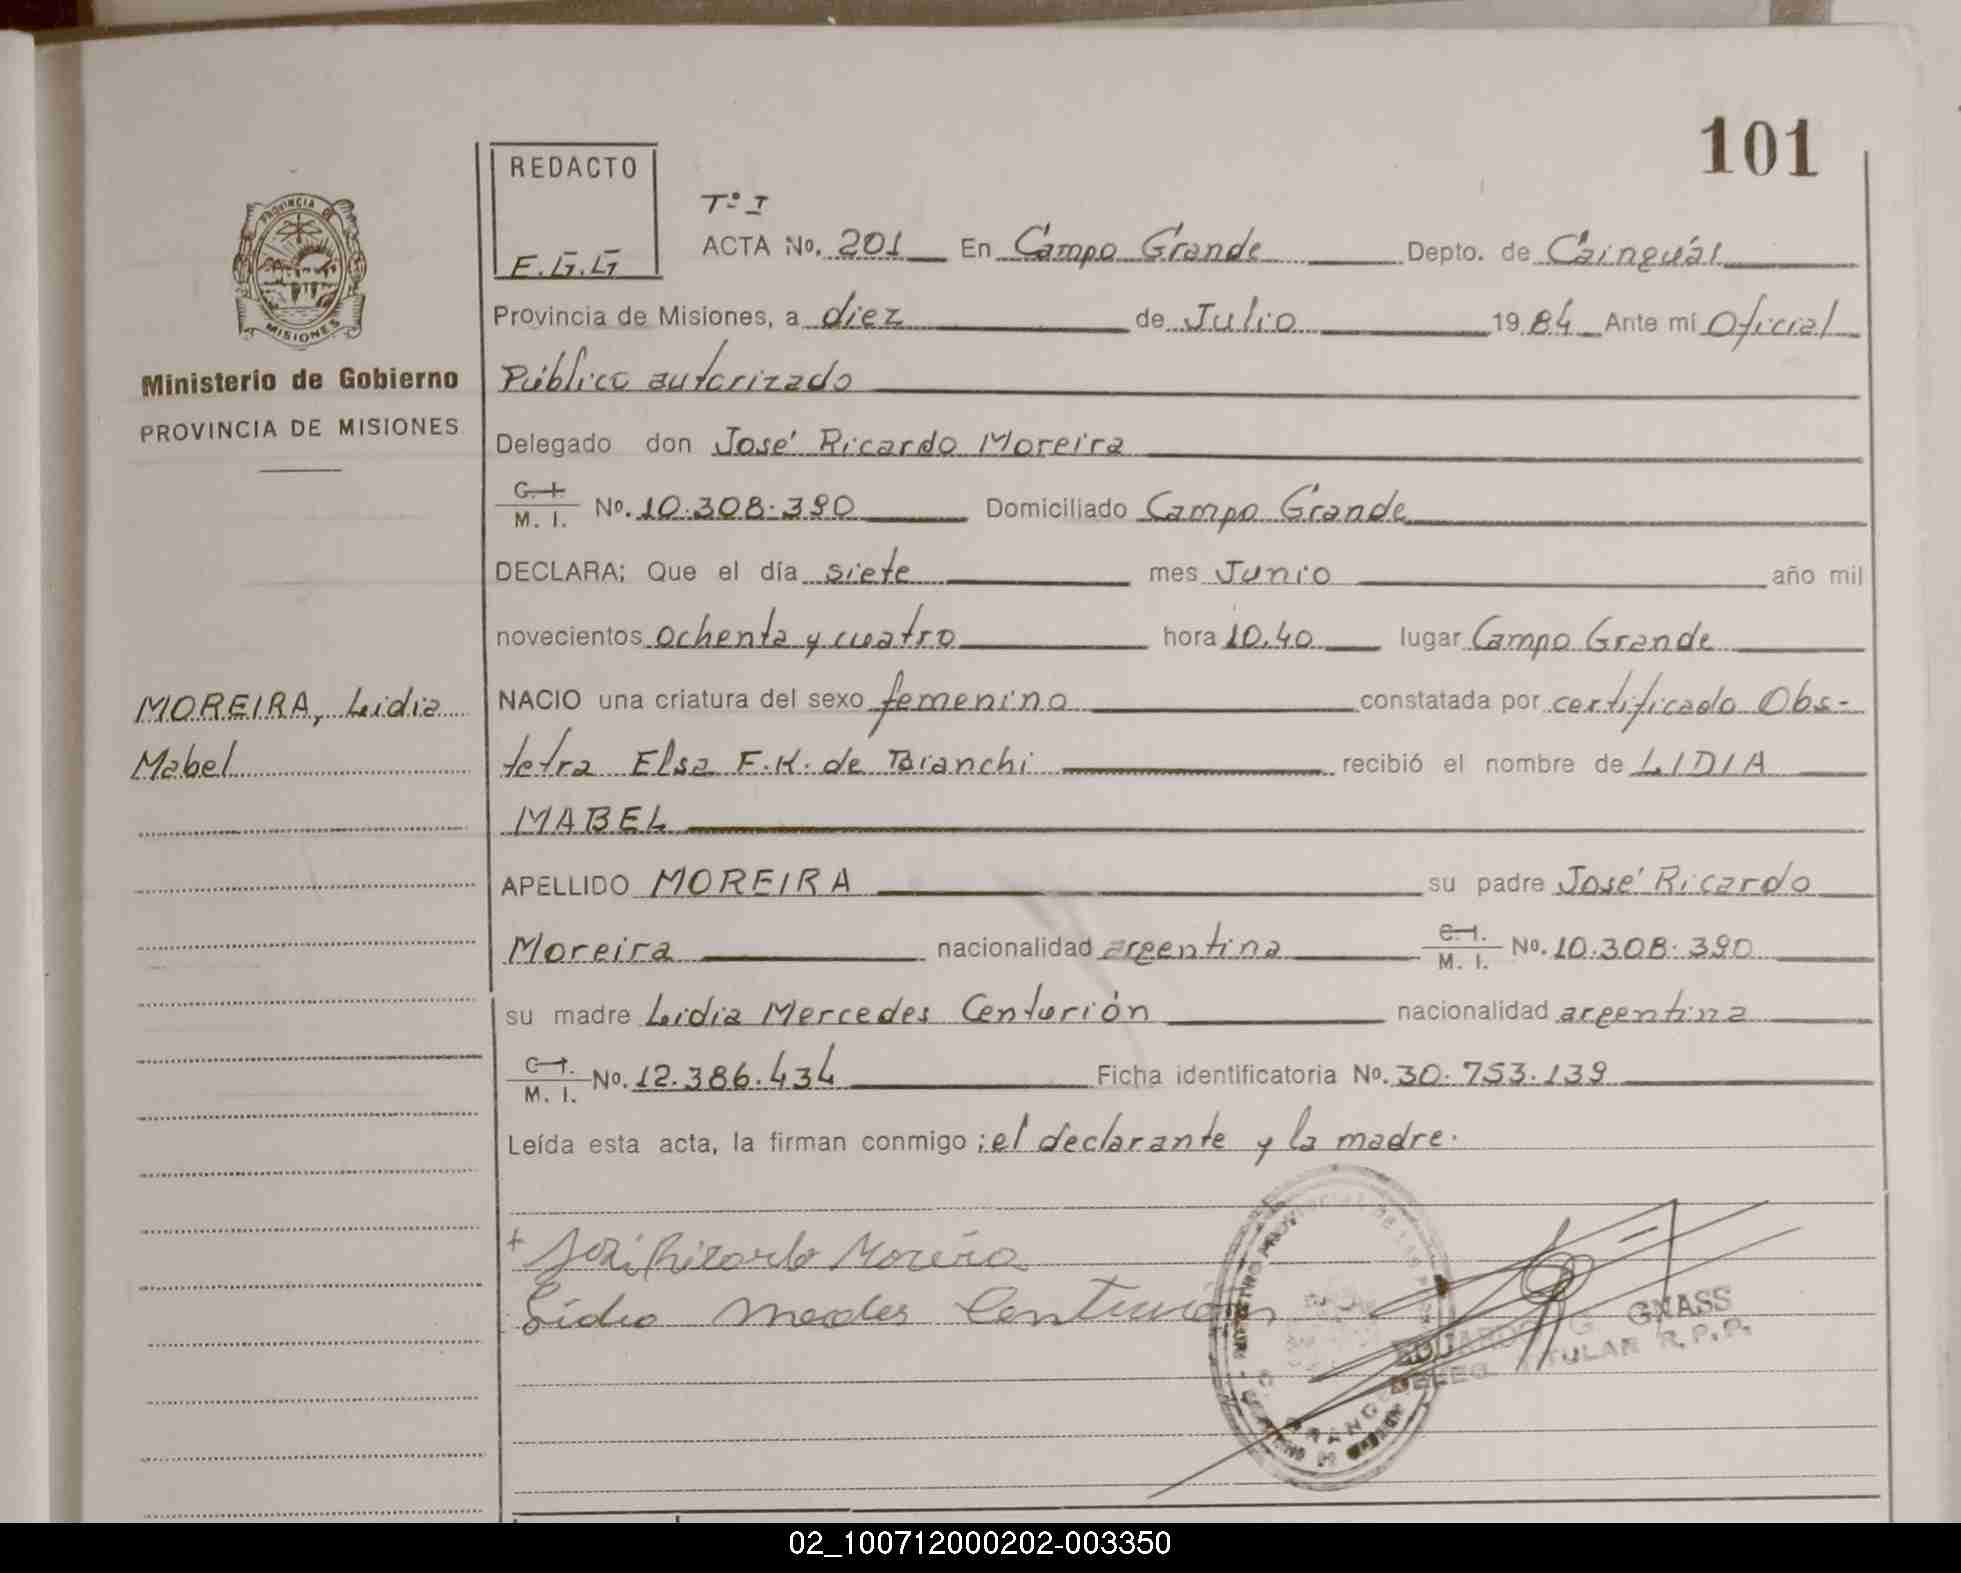 101
REDACTO
E.G.G
Tº I
ACTA Nº. 201 En Campo Grande Depto. de Cainguás
PROVINCIA DE
MISIONES
Provincia de Misiones, a diez de Julio 1984 Ante mí Oficial
Ministerio de Gobierno
PROVINCIA DE MISIONES
Público autorizado
Delegado don José Ricardo Moreira
C. I. / M. I. Nº. 10.308.390 Domiciliado Campo Grande
DECLARA; Que el día siete mes Junio año mil
novecientos ochenta y cuatro hora 10.40 lugar Campo Grande
MOREIRA, Lidia
Mabel
NACIO una criatura del sexo femenino constatada por certificado Obs-
tetra Elsa F.K. de Bianchi recibió el nombre de LIDIA
MABEL
APELLIDO MOREIRA su padre José Ricardo
Moreira nacionalidad argentina C. I. / M. I. Nº. 10.308.390
su madre Lidia Mercedes Centurión nacionalidad argentina
C. I. / M. I. Nº. 12.386.434 Ficha identificatoria Nº. 30.753.139
Leída esta acta, la firman conmigo: el declarante y la madre.
+ José Ricardo Moreira
Lidia Mercedes Centurión
EDUARDO G. GNASS
DELEG. TITULAR R.P.P.
02_100712000202-003350